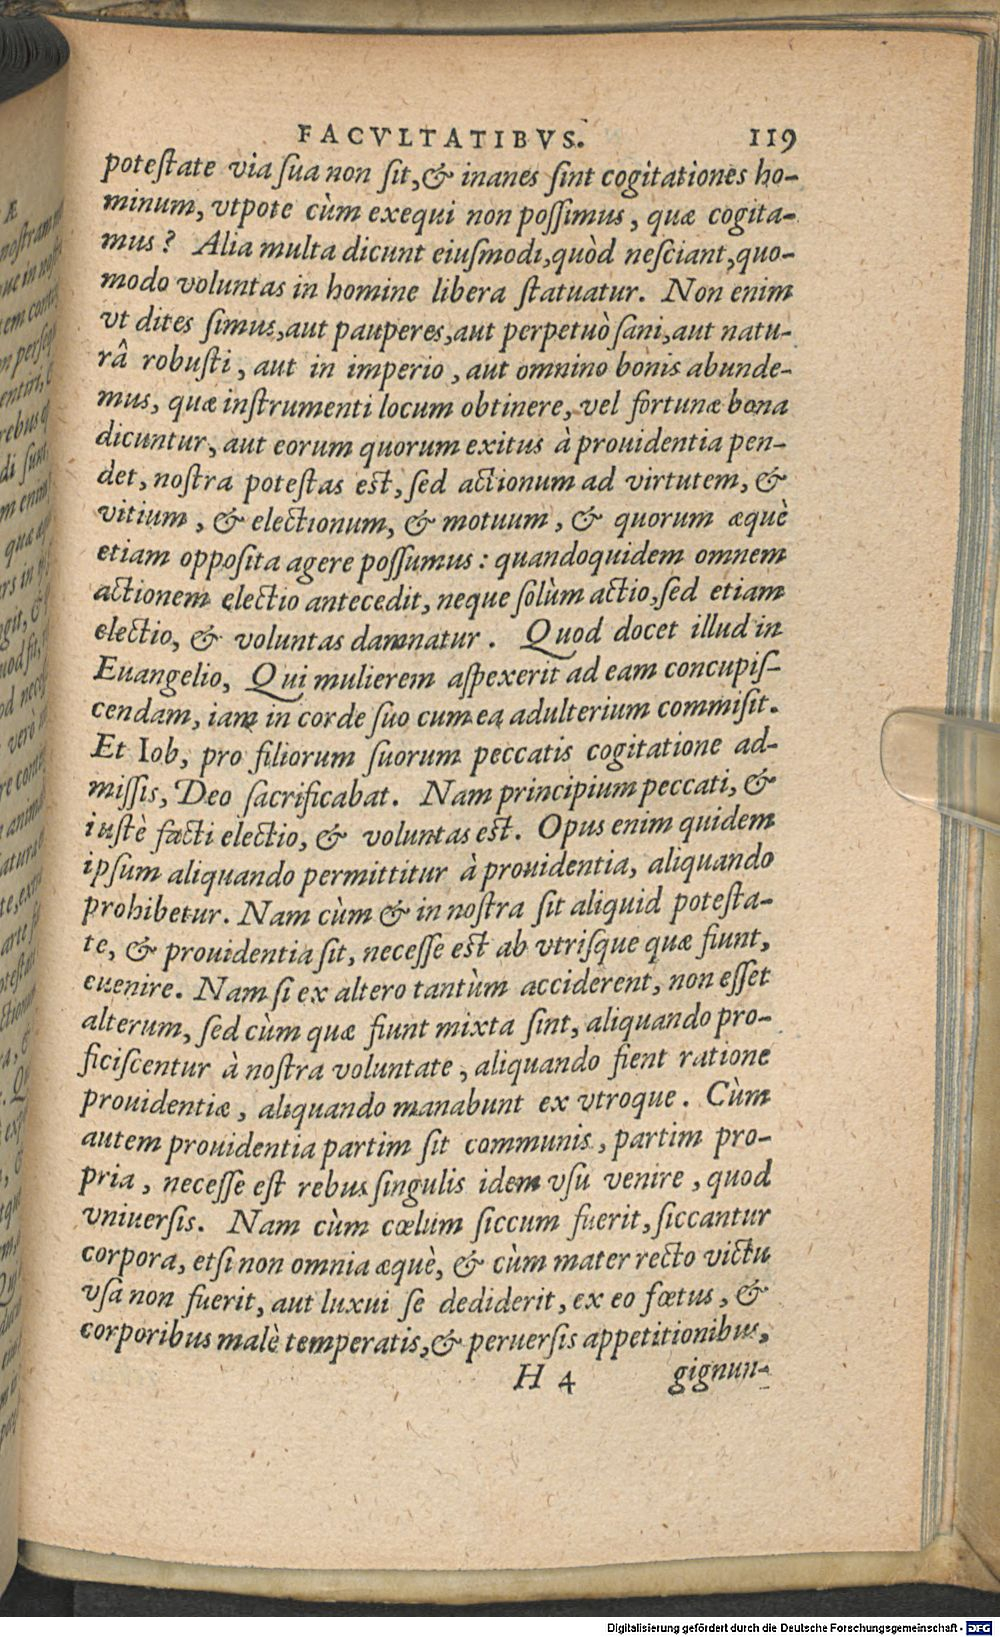 FACVLTATIBVS. 119
poteſtate via ſua non ſit, & inanes ſint cogitationes ho-
minum, vtpote cùm exequi non poſſimus, quæ cogita-
mus? Alia multa dicunt eiuſmodi, quòd neſciant, quo-
modo voluntas in homine libera ſtatuatur. Non enim
vt dites ſimus, aut pauperes, aut perpetuò ſani, aut natu-
râ robuſti, aut in imperio, aut omnino bonis abunde-
mus, quæ inſtrumenti locum obtinere, vel fortunæ bona
dicuntur, aut eorum quorum exitus à prouidentia pen-
det, noſtra poteſtas eſt, ſed actionum ad virtutem, &
vitium, & electionum, & motuum, & quorum æquè
etiam oppoſita agere poſſumus: quandoquidem omnem
actionem electio antecedit, neque ſolùm actio, ſed etiam
electio, & voluntas damnatur. Quod docet illud in
Euangelio, Qui mulierem aſpexerit ad eam concupiſ-
cendam, iam in corde ſuo cum ea adulterium commiſit.
Et Iob, pro filiorum ſuorum peccatis cogitatione ad-
miſſis, Deo ſacrificabat. Nam principium peccati, &
iuſtè facti electio, & voluntas eſt. Opus enim quidem
ipſum aliquando permittitur à prouidentia, aliquando
prohibetur. Nam cùm & in noſtra ſit aliquid poteſta-
te, & prouidentia ſit, neceſſe eſt ab vtriſque quæ fiunt,
euenire. Nam ſi ex altero tantùm acciderent, non eſſet
alterum, ſed cùm quæ fiunt mixta ſint, aliquando pro-
ficiſcentur à noſtra voluntate, aliquando fient ratione
prouidentiæ, aliquando manabunt ex vtroque. Cùm
autem prouidentia partim ſit communis, partim pro-
pria, neceſſe eſt rebus ſingulis idem vſu venire, quod
vniuerſis. Nam cùm cœlum ſiccum fuerit, ſiccantur
corpora, etſi non omnia æquè, & cùm mater recto victu
vſa non fuerit, aut luxui ſe dediderit, ex eo fœtus, &
corporibus malè temperatis, & peruerſis appetitionibus,
H 4 gignun-
Digitalisierung gefördert durch die Deutsche Forschungsgemeinschaft - DFG